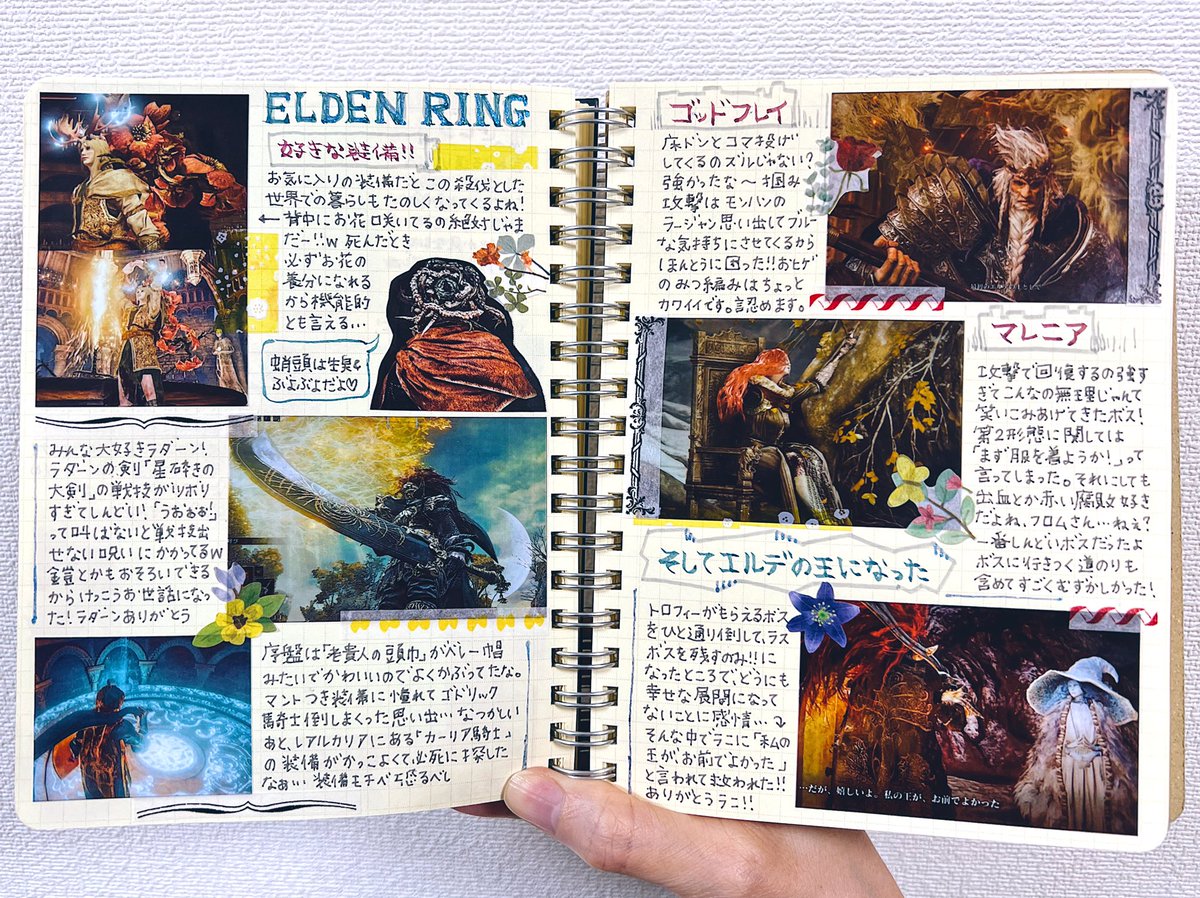 ELDEN RING
好きな装備!!
お気に入りの装備だとこの殺伐とした
世界での暮らしもたのしくなってくるよね!
←背中にお花咲いてるの絶対じゃま
だー!!w 死んだとき
必ずお花の
養分になれる
から機能的
とも言える…
蛸頭は生臭&
ぷよぷよだよ♡
みんな大好きラダーン!
ラダーンの剣「星砕きの
大剣」の戦技がツボリ
すぎてしんどい!「うおぉぉ!」
って叫ばないと戦技出
せない呪いにかかってるw
鎧とかもおそろいできる
からけっこうお世話になっ
た!ラダーンありがとう
序盤は「老貴人の頭巾」がベレー帽
みたいでかわいいのでよくかぶってたな。
マントつき装備に憧れてゴドリック
騎士倒しまくった思い出…なつかしい
あと、レアルカリアにある「カーリア騎士」
の装備がかっこよくて必死に探した
なぁ… 装備モチベ恐るべし
ゴッドフレイ
床ドンとコマ投げ
してくるのズルじゃない?
強かったな〜掴み
攻撃はモンハンの
ラージャン思い出してブルー
な気持ちにさせてくるから
ほんとうに困った!!おヒゲ
のみつ編みはちょっと
カワイイです。認めます。
マレニア
攻撃で回復するの強す
ぎてこんなの無理じゃんて
笑いこみあげてきたボス!
第2形態に関しては
「まず服を着ようか!」って
言ってしまった。それにしても
出血とか赤い腐敗好き
だよね、フロムさん…ねぇ?
一番しんどいボスだったよ
ボスに行きつく道のりも
含めてすごくむずかしかった!
そしてエルデの王になった
トロフィーがもらえるボス
をひと通り倒して、ラス
ボスを残すのみ!!に
なったところで、どうにも
幸せな展開になって
ないことに感情…
そんな中でラニに「私の
王が、お前でよかった」
と言われて救われた!!
ありがとうラニ!!
…だが、嬉しいよ。私の王が、お前でよかった